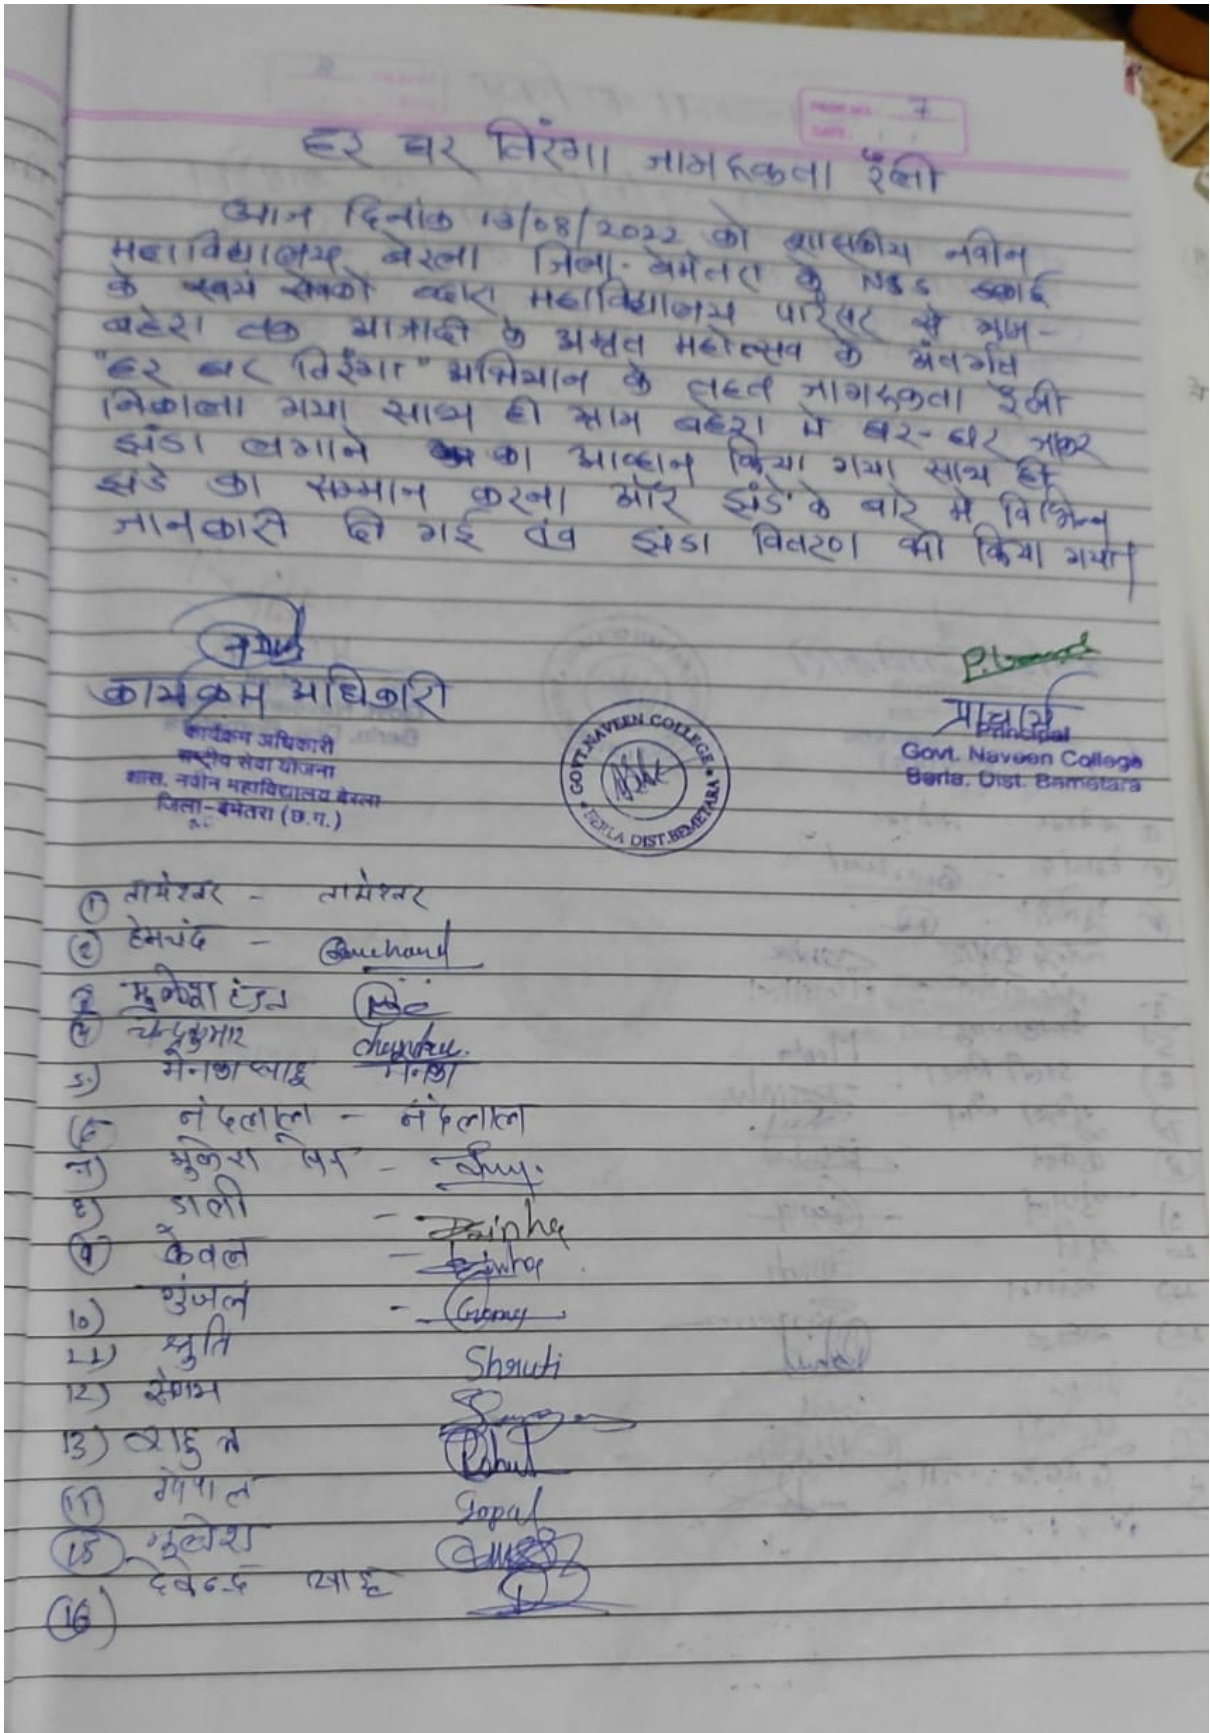 PAGE NO. 7
DATE
हर घर तिरंगा जागरुकता रैली
आज दिनांक 13/08/2022 को शासकीय नवीन
महाविद्यालय बेरला जिला - बेमेतरा के NSS इकाई
के स्वयं सेवको द्वारा महाविद्यालय परिसर से ग्राम -
बहेरा तक आजादी के अमृत महोत्सव के अंतर्गत
"हर घर तिरंगा" अभियान के तहत जागरुकता रैली
निकाला गया साथ ही ग्राम बहेरा मे घर - घर जाकर
झंडा लगाने का आव्हान किया गया साथ ही
झंडे का सम्मान करना और झंडे के बारे मे विभिन्न
जानकारी दी गई एंव झंडा वितरण भी किया गया।
कार्यक्रम अधिकारी
कार्यक्रम अधिकारी
राष्ट्रीय सेवा योजना
शास. नवीन महाविद्यालय बेरला
जिला-बेमेतरा (छ.ग.)
GOVT. NAVEEN COLLEGE
BERLA DIST. BEMETARA
प्राचार्य
Principal
Govt. Naveen College
Berla, Dist. Bemetara
① तामेश्वर - तामेश्वर
② हेमचंद - Hemchand
③ मुकेश टंडन
④ चन्द्रकुमार
5.) मेनका साहू मेनका
⑥ नंदलाल - नंदलाल
7) मुकेश -
8) डाली - Dsinha
⑨ केवल -
10) गुंजल -
11) श्रुति Shruti
12) संगम
13) राहुल Rahul
14) गोपाल Gopal
⑮
⑯ देवेन्द्र साहू